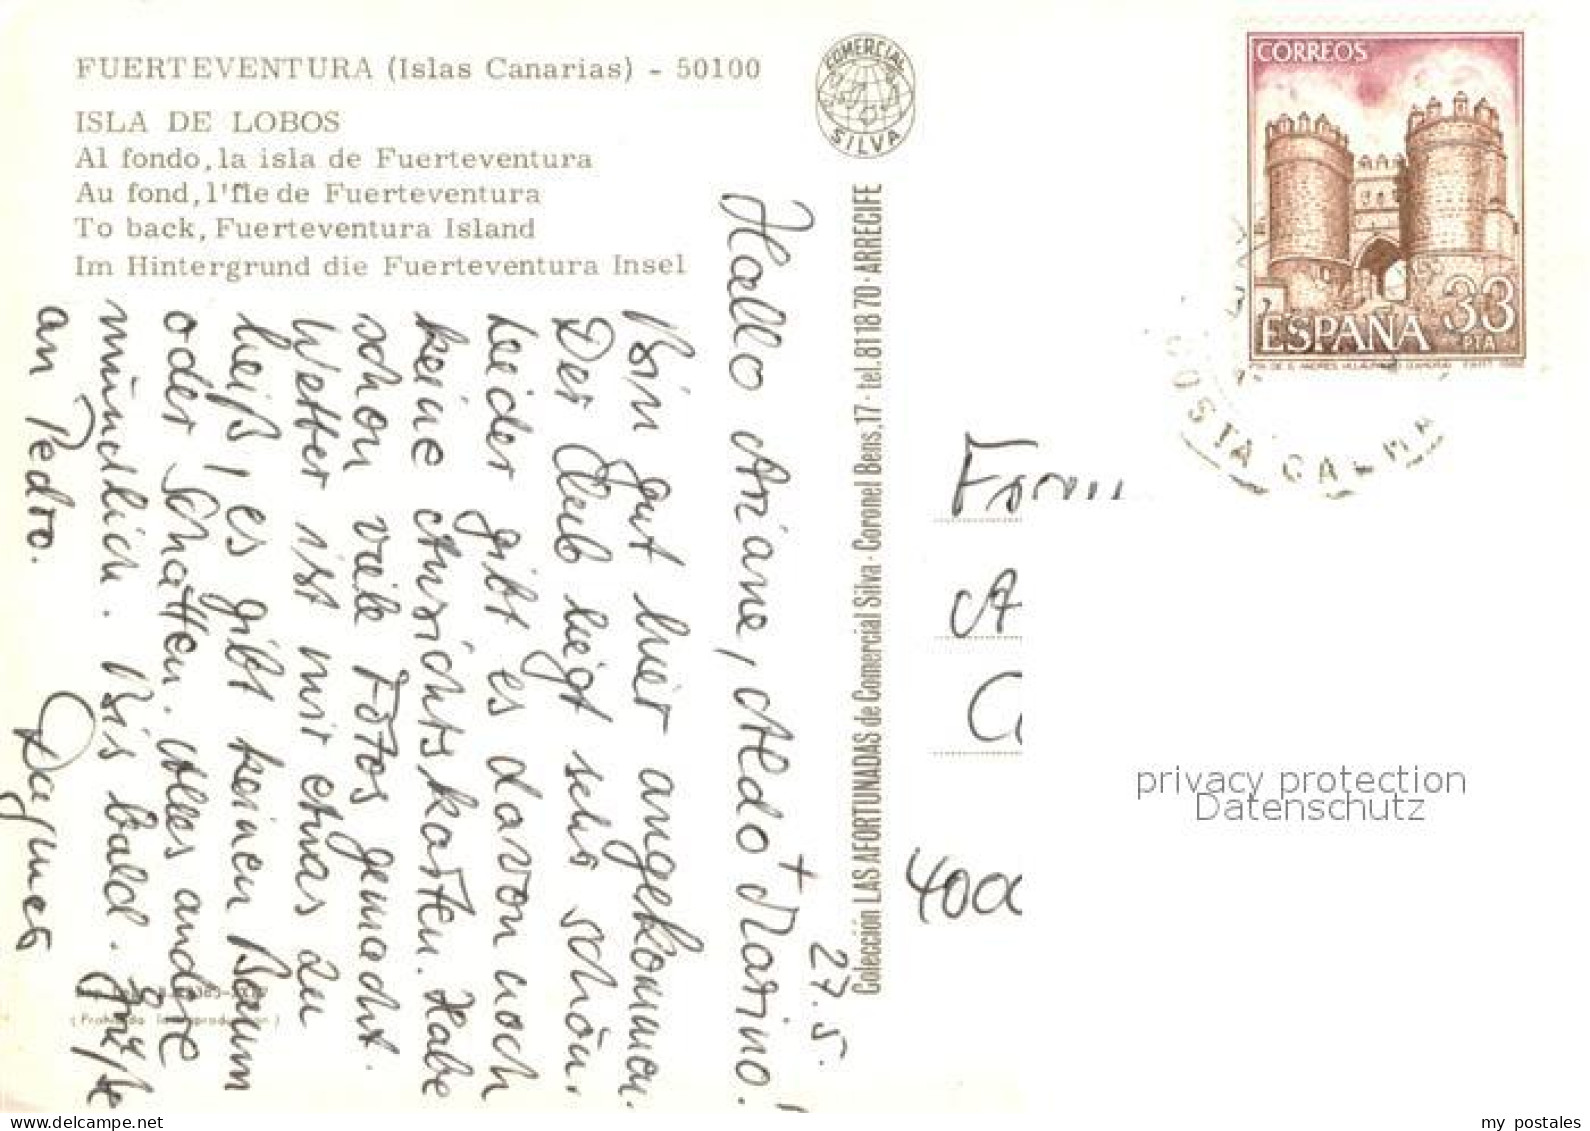 FUERTEVENTURA (Islas Canarias) - 50100
ISLA DE LOBOS
Al fondo, la isla de Fuerteventura
Au fond, l'île de Fuerteventura
To back, Fuerteventura Island
Im Hintergrund die Fuerteventura Insel
COMERCIAL
SILVA
Colección LAS AFORTUNADAS de Comercial Silva · Coronel Bens, 17 · tel. 81 18 70 · ARRECIFE
27.5.
Hallo Ariane, Aldo + Marino!
Bin gut hier angekommen.
Der Club liegt sehr schön.
Leider gibt es davon noch
keine Ansichtskarten. Habe
schon viele Fotos gemacht.
Wetter ist mir etwas zu
heiß, es gibt keinen Baum
oder Schatten. Alles andere
mündlich. Bis bald. Grüße
an Pedro.
Dagmar
CORREOS
33
ESPAÑA PTA
COSTA CALMA
400
privacy protection
Datenschutz
my postales